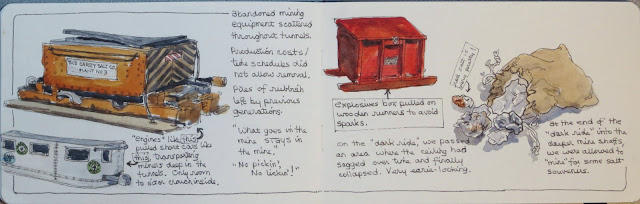 THE CAREY SALT CO.
PLANT No 3
"Engines" like this
pulled shore cars like
this, transporting
miners deep in the
tunnels. Only room
to sit or crouch inside.
Abandoned mining
equipment scattered
throughout tunnels.
Production costs/
time schedules did
not allow removal.
Piles of rubbish
left by previous
generations.
"What goes in the
mine STAYS in
the mine."
"No pickin',
No lickin'!"
Explosives box pulled on
wooden runners to avoid
sparks.
On the "dark ride," we passed
an area where the ceiling had
sagged over time and finally
collapsed. Very eerie-looking.
at the end of the
"dark ride" into the
deeper mine shafts,
we were allowed to
"mine" for some salt
souvenirs.